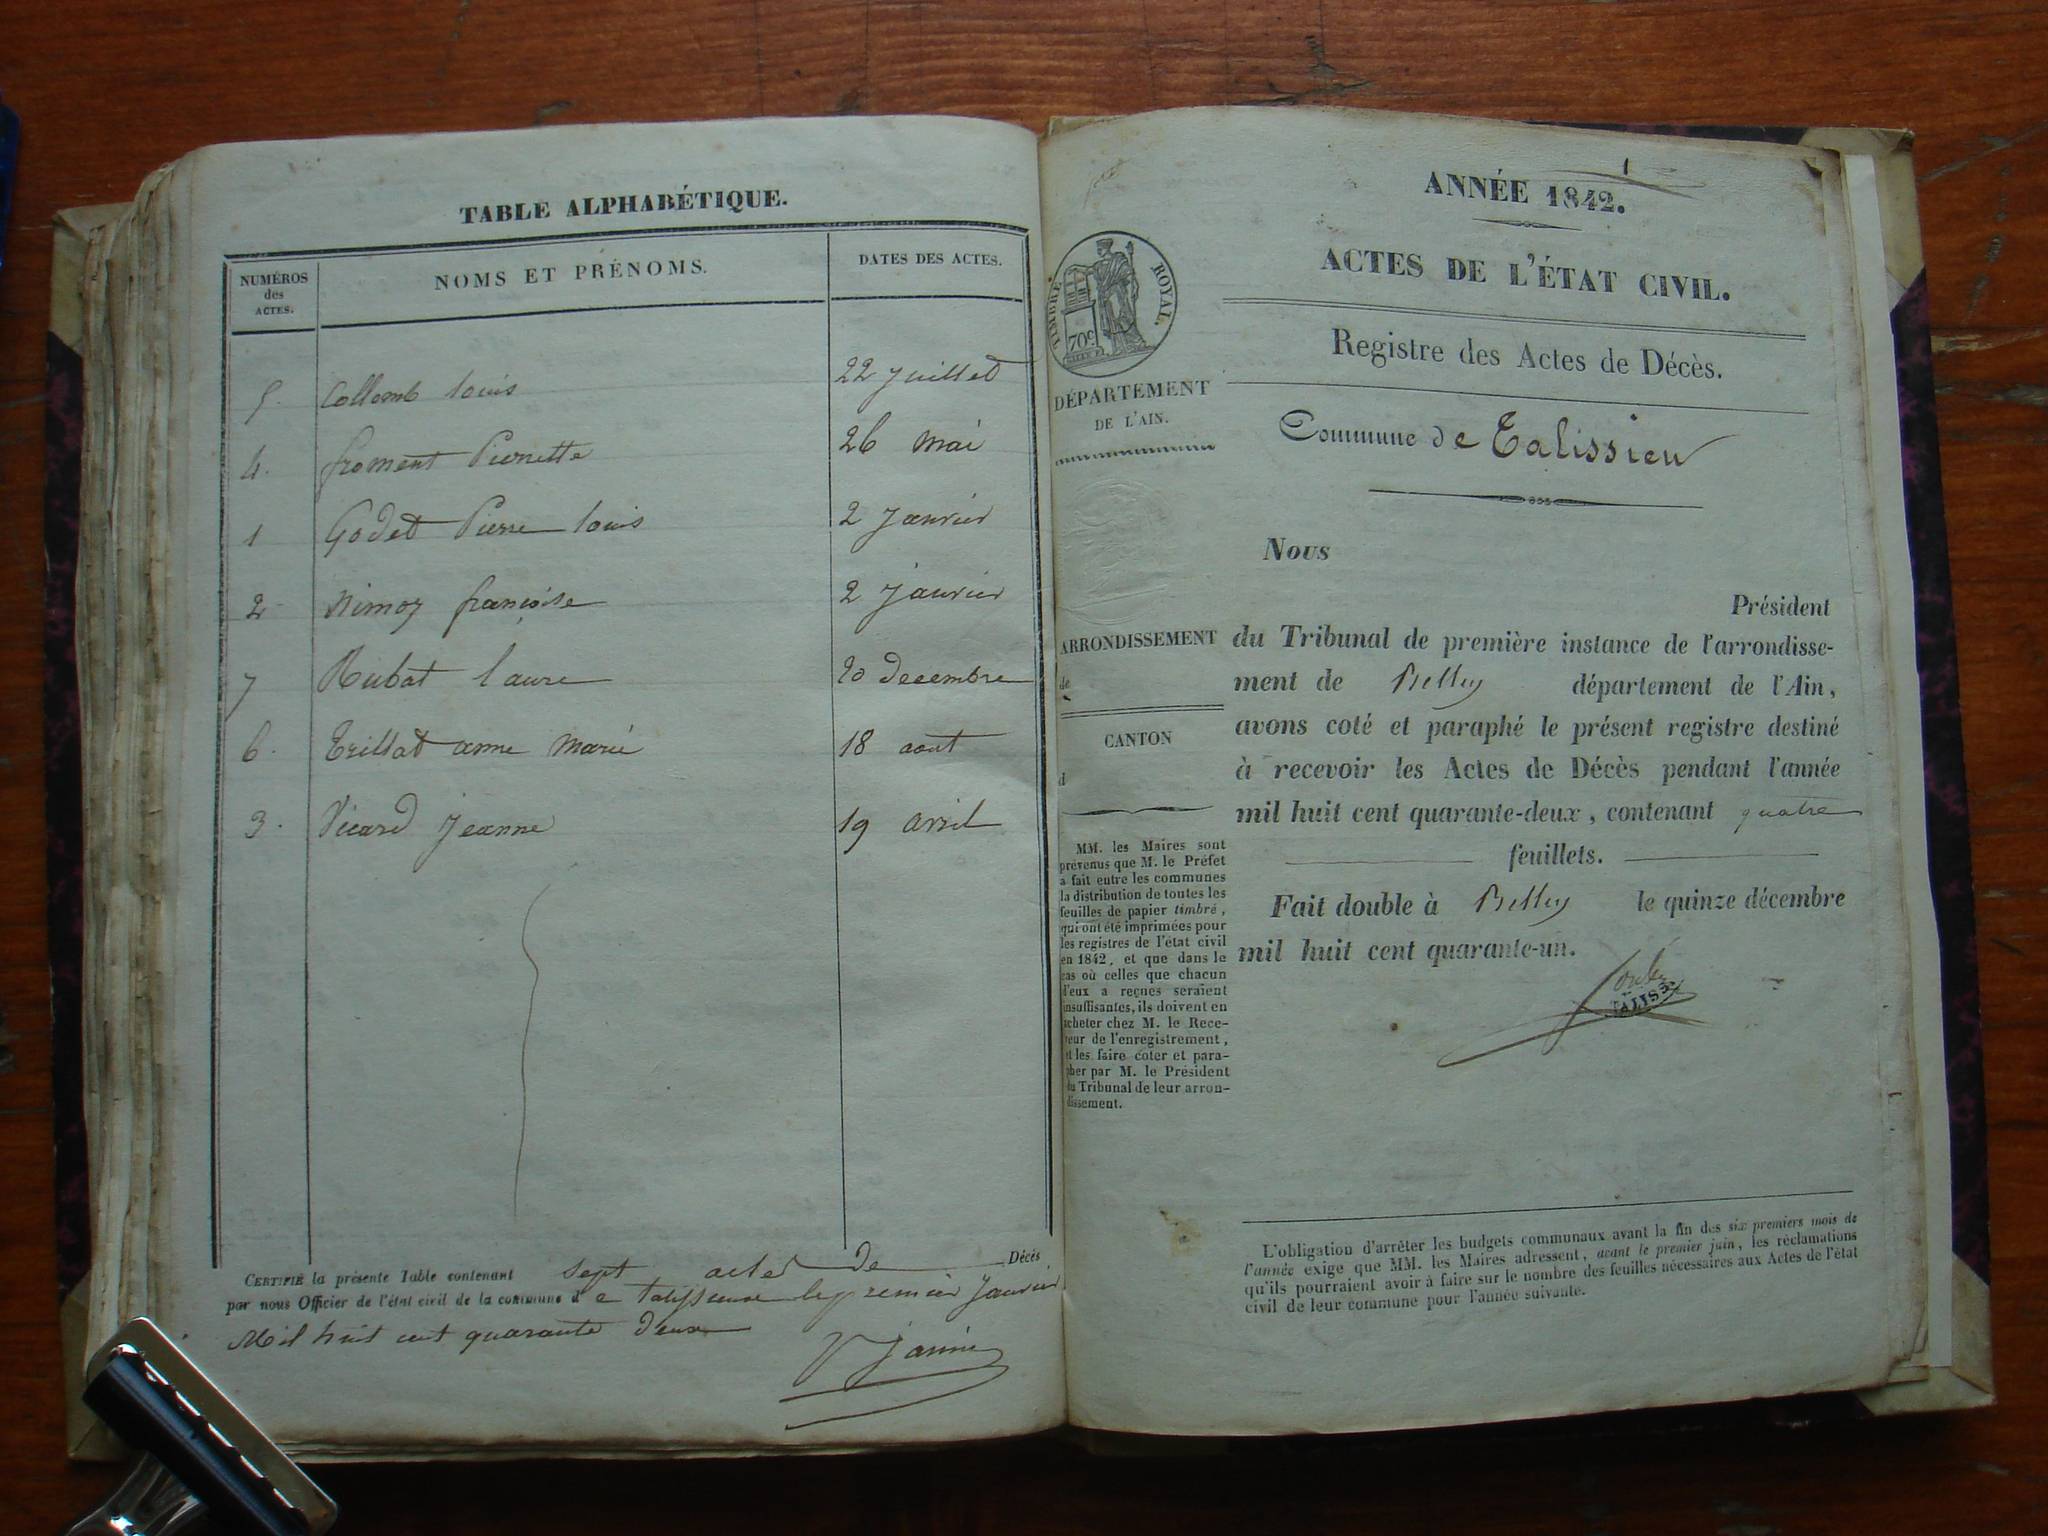 TABLE ALPHABÉTIQUE.
NUMÉROS des ACTES. NOMS ET PRÉNOMS. DATES DES ACTES.
5. Collomb louis 22 juillet
4. froment Pierrette 26 mai
1 Godet Pierre louis 2 janvier
2 Nimoz françoise 2 janvier
7 Rubat laure 20 decembre
6. Trillat anne marie 18 aout
3. Vicard jeanne 19 avril
CERTIFIÉ la présente Table contenant sept actes de Décès
par nous Officier de l'état civil de la commune de talissieux le premier janvier
Mil huit cent quarante deux
V janin
1
ANNÉE 1842.
ACTES DE L'ÉTAT CIVIL.
Registre des Actes de Décès.
Commune de Talissieu
TIMBRE ROYAL.
70c
DÉPARTEMENT
DE L'AIN.
ARRONDISSEMENT
de
CANTON
d
MM. les Maires sont
prévenus que M. le Préfet
a fait entre les communes
la distribution de toutes les
feuilles de papier timbré,
qui ont été imprimées pour
les registres de l'état civil
en 1842, et que dans le
cas où celles que chacun
d'eux a reçues seraient
insuffisantes, ils doivent en
acheter chez M. le Rece-
veur de l'enregistrement,
et les faire coter et para-
pher par M. le Président
du Tribunal de leur arron-
dissement.
Nous
Président
du Tribunal de première instance de l'arrondisse-
ment de Belley département de l'Ain,
avons coté et paraphé le présent registre destiné
à recevoir les Actes de Décès pendant l'année
mil huit cent quarante-deux, contenant quatre
feuillets.
Fait double à Belley le quinze décembre
mil huit cent quarante-un.
L'obligation d'arrêter les budgets communaux avant la fin des six premiers mois de
l'année exige que MM. les Maires adressent, avant le premier juin, les réclamations
qu'ils pourraient avoir à faire sur le nombre des feuilles nécessaires aux Actes de l'état
civil de leur commune pour l'année suivante.